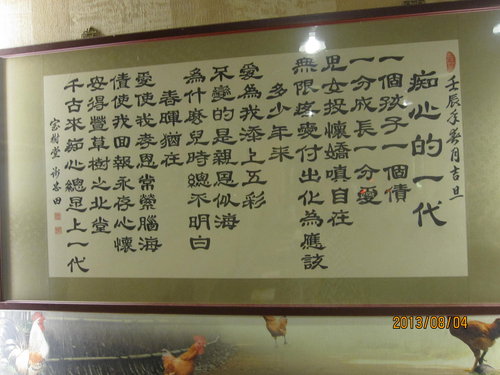 壬辰年葵月吉旦
痴心的一代
一個孩子一個債
一分成長一分愛
兒女投懷嬌嗔自在
無限疼愛付出化為應該
多少年來
愛為我添上五彩
不變的是親恩似海
為什麼兒時總不明白
春暉猶在
愛使我孝恩常縈腦海
債使我回報永存心懷
安得萱草樹之北堂
千古來痴心總是上一代
2013/08/04